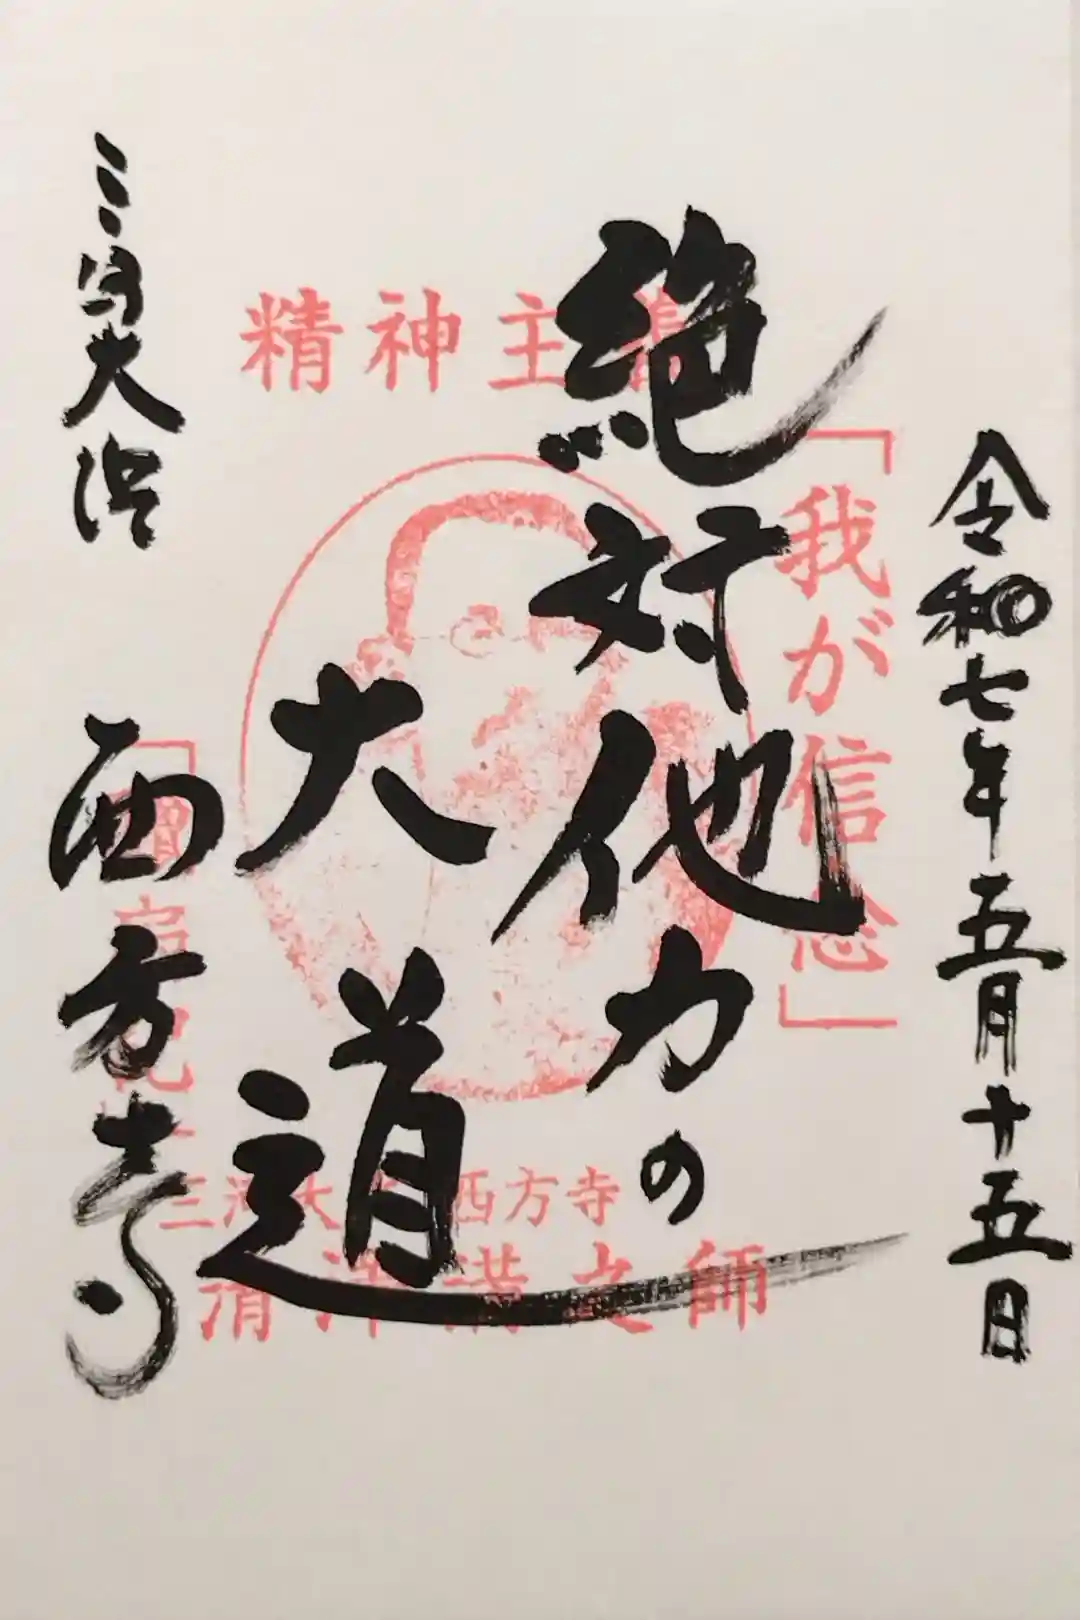 令和七年五月十五日
絶対他力の
大道
三河大浜
西方寺
精神主義
「我が信念」
三河大浜 西方寺
清澤満之師